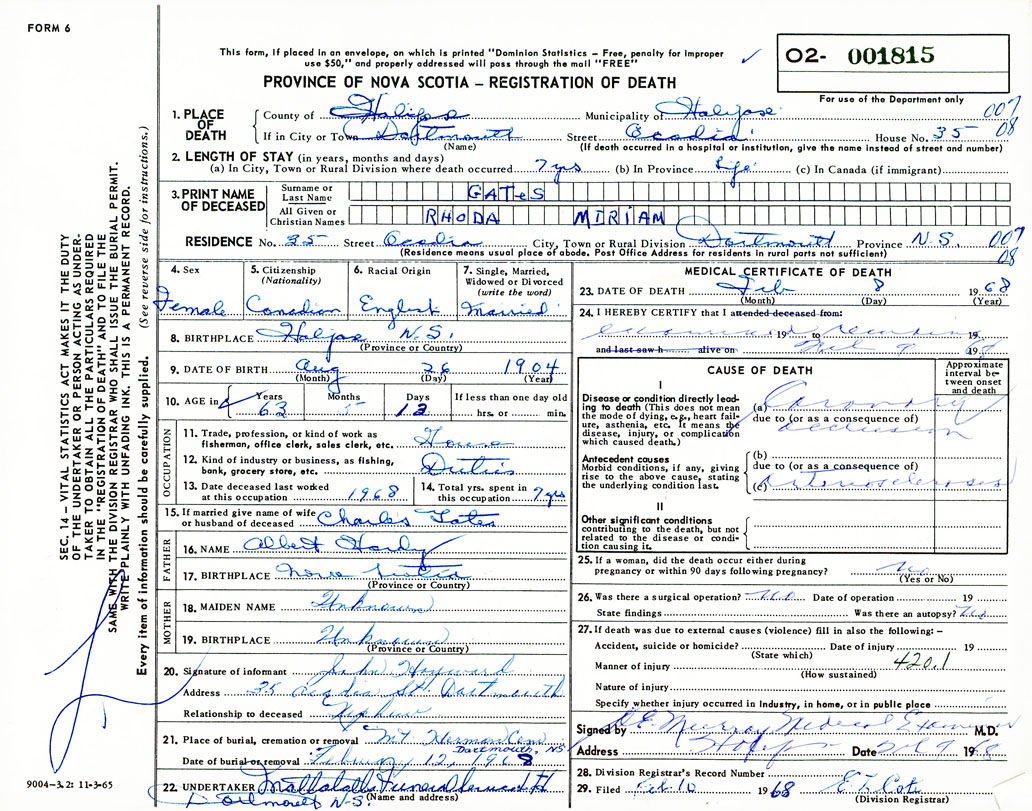 FORM 6
This form, if placed in an envelope, on which is printed "Dominion Statistics – Free, penalty for improper
use $50," and properly addressed will pass through the mail "FREE"
02- 001815
PROVINCE OF NOVA SCOTIA – REGISTRATION OF DEATH
For use of the Department only
1. PLACE OF DEATH County of Halifax Municipality of Halifax 007
If in City or Town Dartmouth Street Acadia House No. 35 08
(Name) (If death occurred in a hospital or institution, give the name instead of street and number)
2. LENGTH OF STAY (in years, months and days)
(a) In City, Town or Rural Division where death occurred 7 yrs (b) In Province Life (c) In Canada (if immigrant)
3. PRINT NAME OF DECEASED Surname or Last Name GATES
All Given or Christian Names RHODA MIRIAM
RESIDENCE No. 35 Street Acadia City, Town or Rural Division Dartmouth Province N.S. 007
(Residence means usual place of abode. Post Office Address for residents in rural parts not sufficient) 08
4. Sex Female
5. Citizenship (Nationality) Canadian
6. Racial Origin English
7. Single, Married, Widowed or Divorced (write the word) Married
8. BIRTHPLACE Halifax N.S.
(Province or Country)
9. DATE OF BIRTH Aug 26 1904
(Month) (Day) (Year)
10. AGE in Years 63 Months 5 Days 13 If less than one day old
hrs. or min.
OCCUPATION
11. Trade, profession, or kind of work as fisherman, office clerk, sales clerk, etc. House
12. Kind of industry or business, as fishing, bank, grocery store, etc. Duties
13. Date deceased last worked at this occupation 1968
14. Total yrs. spent in this occupation 7 yrs
15. If married give name of wife or husband of deceased Charles Gates
FATHER
16. NAME Albert Hardy
17. BIRTHPLACE Nova Scotia
(Province or Country)
MOTHER
18. MAIDEN NAME Unknown
19. BIRTHPLACE Unknown
(Province or Country)
20. Signature of informant Hayward
Address 35 Acadia St. Dartmouth
Relationship to deceased Nephew
21. Place of burial, cremation or removal Mt Hermon Cem
Dartmouth, NS
Date of burial or removal February 12, 1968
22. UNDERTAKER Mattatall's Funeral Service Ltd
Dartmouth N.S. (Name and address)
MEDICAL CERTIFICATE OF DEATH
23. DATE OF DEATH Feb 8 1968
(Month) (Day) (Year)
24. I HEREBY CERTIFY that I attended deceased from:
19 to 19
and last saw h alive on 9 1968
CAUSE OF DEATH
Approximate interval between onset and death
I
Disease or condition directly leading to death (This does not mean the mode of dying, e.g., heart failure, asthenia, etc. It means the disease, injury, or complication which caused death.)
(a) Coronary
due to (or as a consequence of)
occlusion
Antecedent causes
Morbid conditions, if any, giving rise to the above cause, stating the underlying condition last.
(b)
due to (or as a consequence of)
(c) Arteriosclerosis
II
Other significant conditions
contributing to the death, but not related to the disease or condition causing it.
25. If a woman, did the death occur either during pregnancy or within 90 days following pregnancy? No
(Yes or No)
26. Was there a surgical operation? No Date of operation 19
State findings Was there an autopsy? No
27. If death was due to external causes (violence) fill in also the following: –
Accident, suicide or homicide? Date of injury 19
(State which)
Manner of injury 420.1
(How sustained)
Nature of injury
Specify whether injury occurred in Industry, in home, or in public place
Signed by Murray Medical Examiner M.D.
Address Halifax Date Feb 9 1968
28. Division Registrar's Record Number
29. Filed Feb. 10 1968
(Division Registrar)
SEC. 14 – VITAL STATISTICS ACT MAKES IT THE DUTY
OF THE UNDERTAKER OR PERSON ACTING AS UNDER-
TAKER TO OBTAIN ALL THE PARTICULARS REQUIRED
IN THE "REGISTRATION OF DEATH" AND TO FILE THE
SAME WITH THE DIVISION REGISTRAR WHO SHALL ISSUE THE BURIAL PERMIT.
WRITE PLAINLY WITH UNFADING INK. THIS IS A PERMANENT RECORD.
Every item of information should be carefully supplied. (See reverse side for instructions.)
9004-3.2: 11-3-65